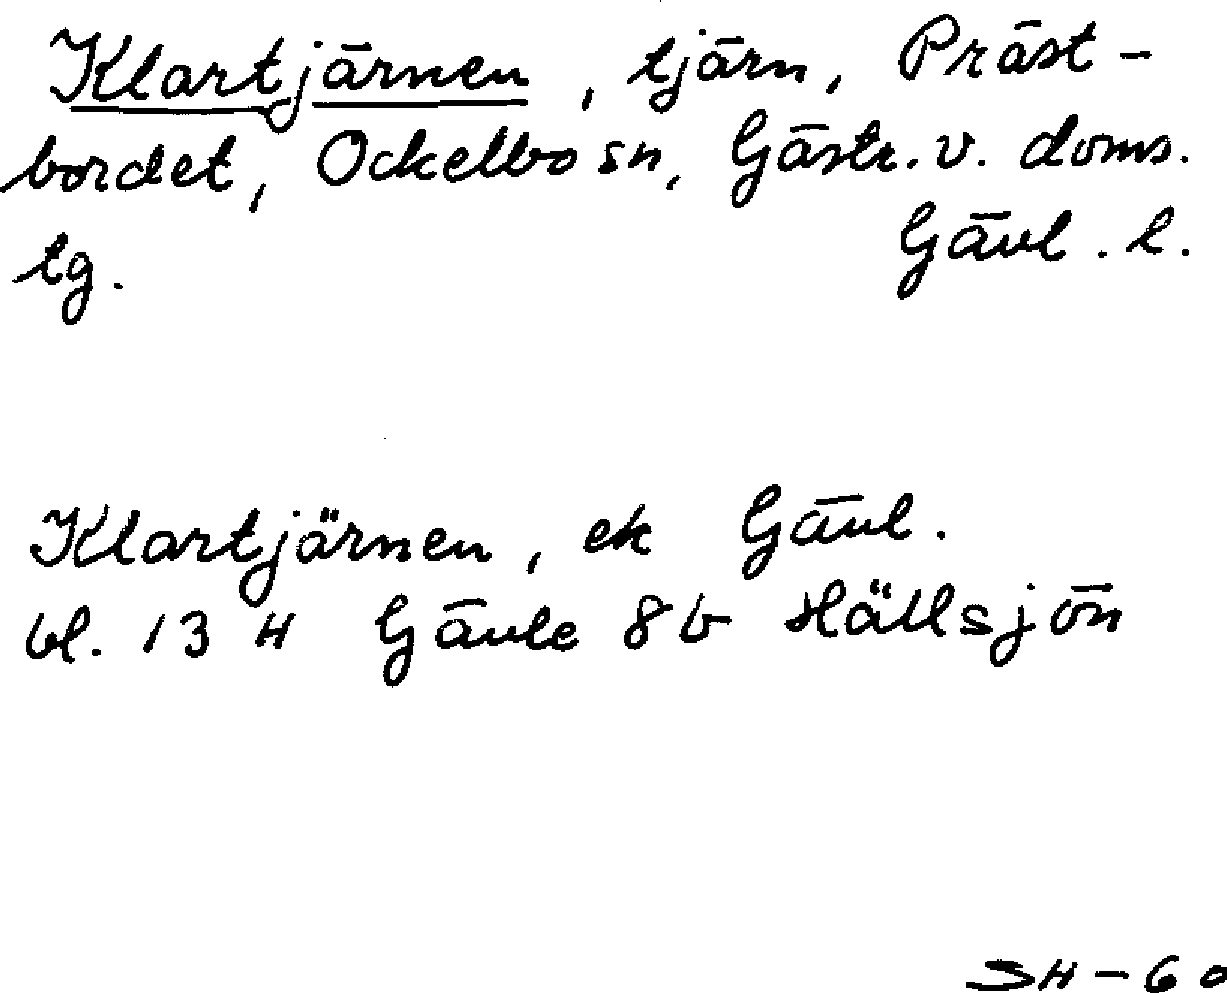 Klartjärnen, tjärn, Präst-
bordet, Ockelbo sn, Gästr. v. doms.
tg. Gävl. l.
Klartjärnen, ek Gävl.
bl. 13 H Gävle 8 b Hällsjön
SH-60